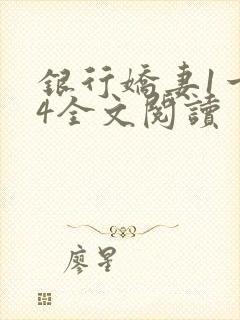 銀行嬌妻1一
4全文閱讀
廖星